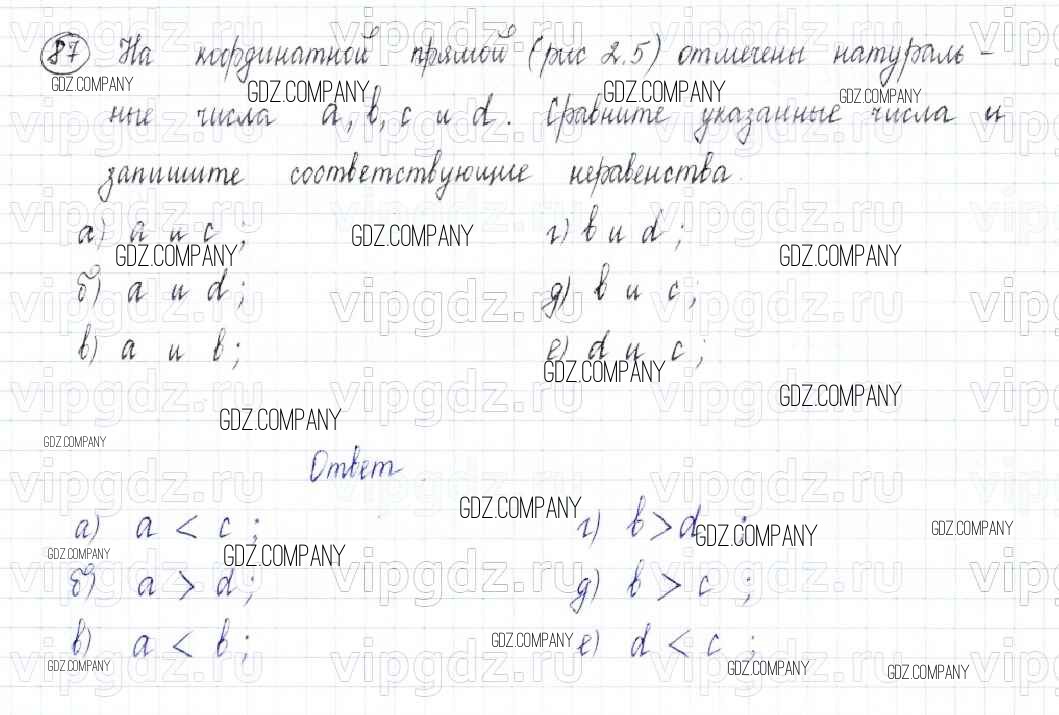 87 На координатной прямой (рис 2.5) отмечены натураль-
ные числа a, b, c и d. Сравните указанные числа и
запишите соответствующие неравенства.
а) a и c; г) b и d;
б) a и d; д) b и c;
в) a и b; е) d и c;
Ответ
а) a < c; г) b > d;
б) a > d; д) b > c;
в) a < b; е) d < c;
GDZ.COMPANY
vipgdz.ru